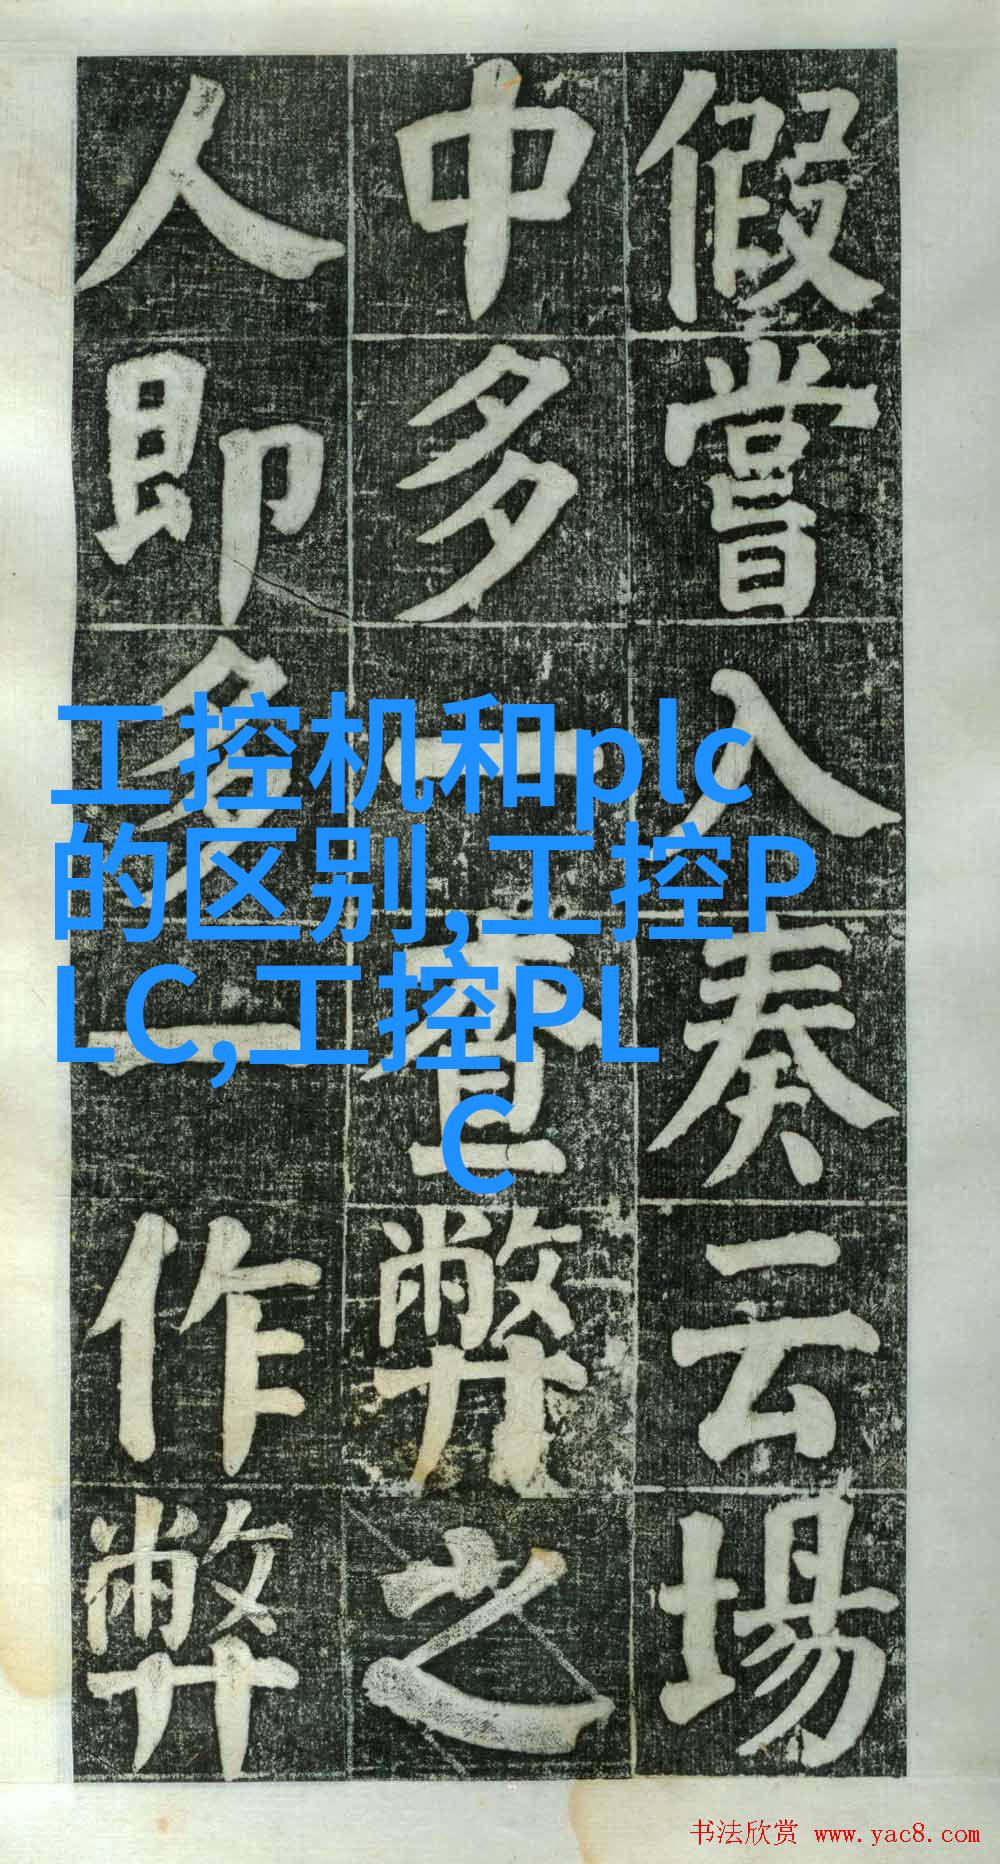 假嘗入奏云場
中多一查弊之
人即多一作弊
工控机和plc
的区别,工控P
LC,工控PL
C
书法欣赏 www.yac8.com